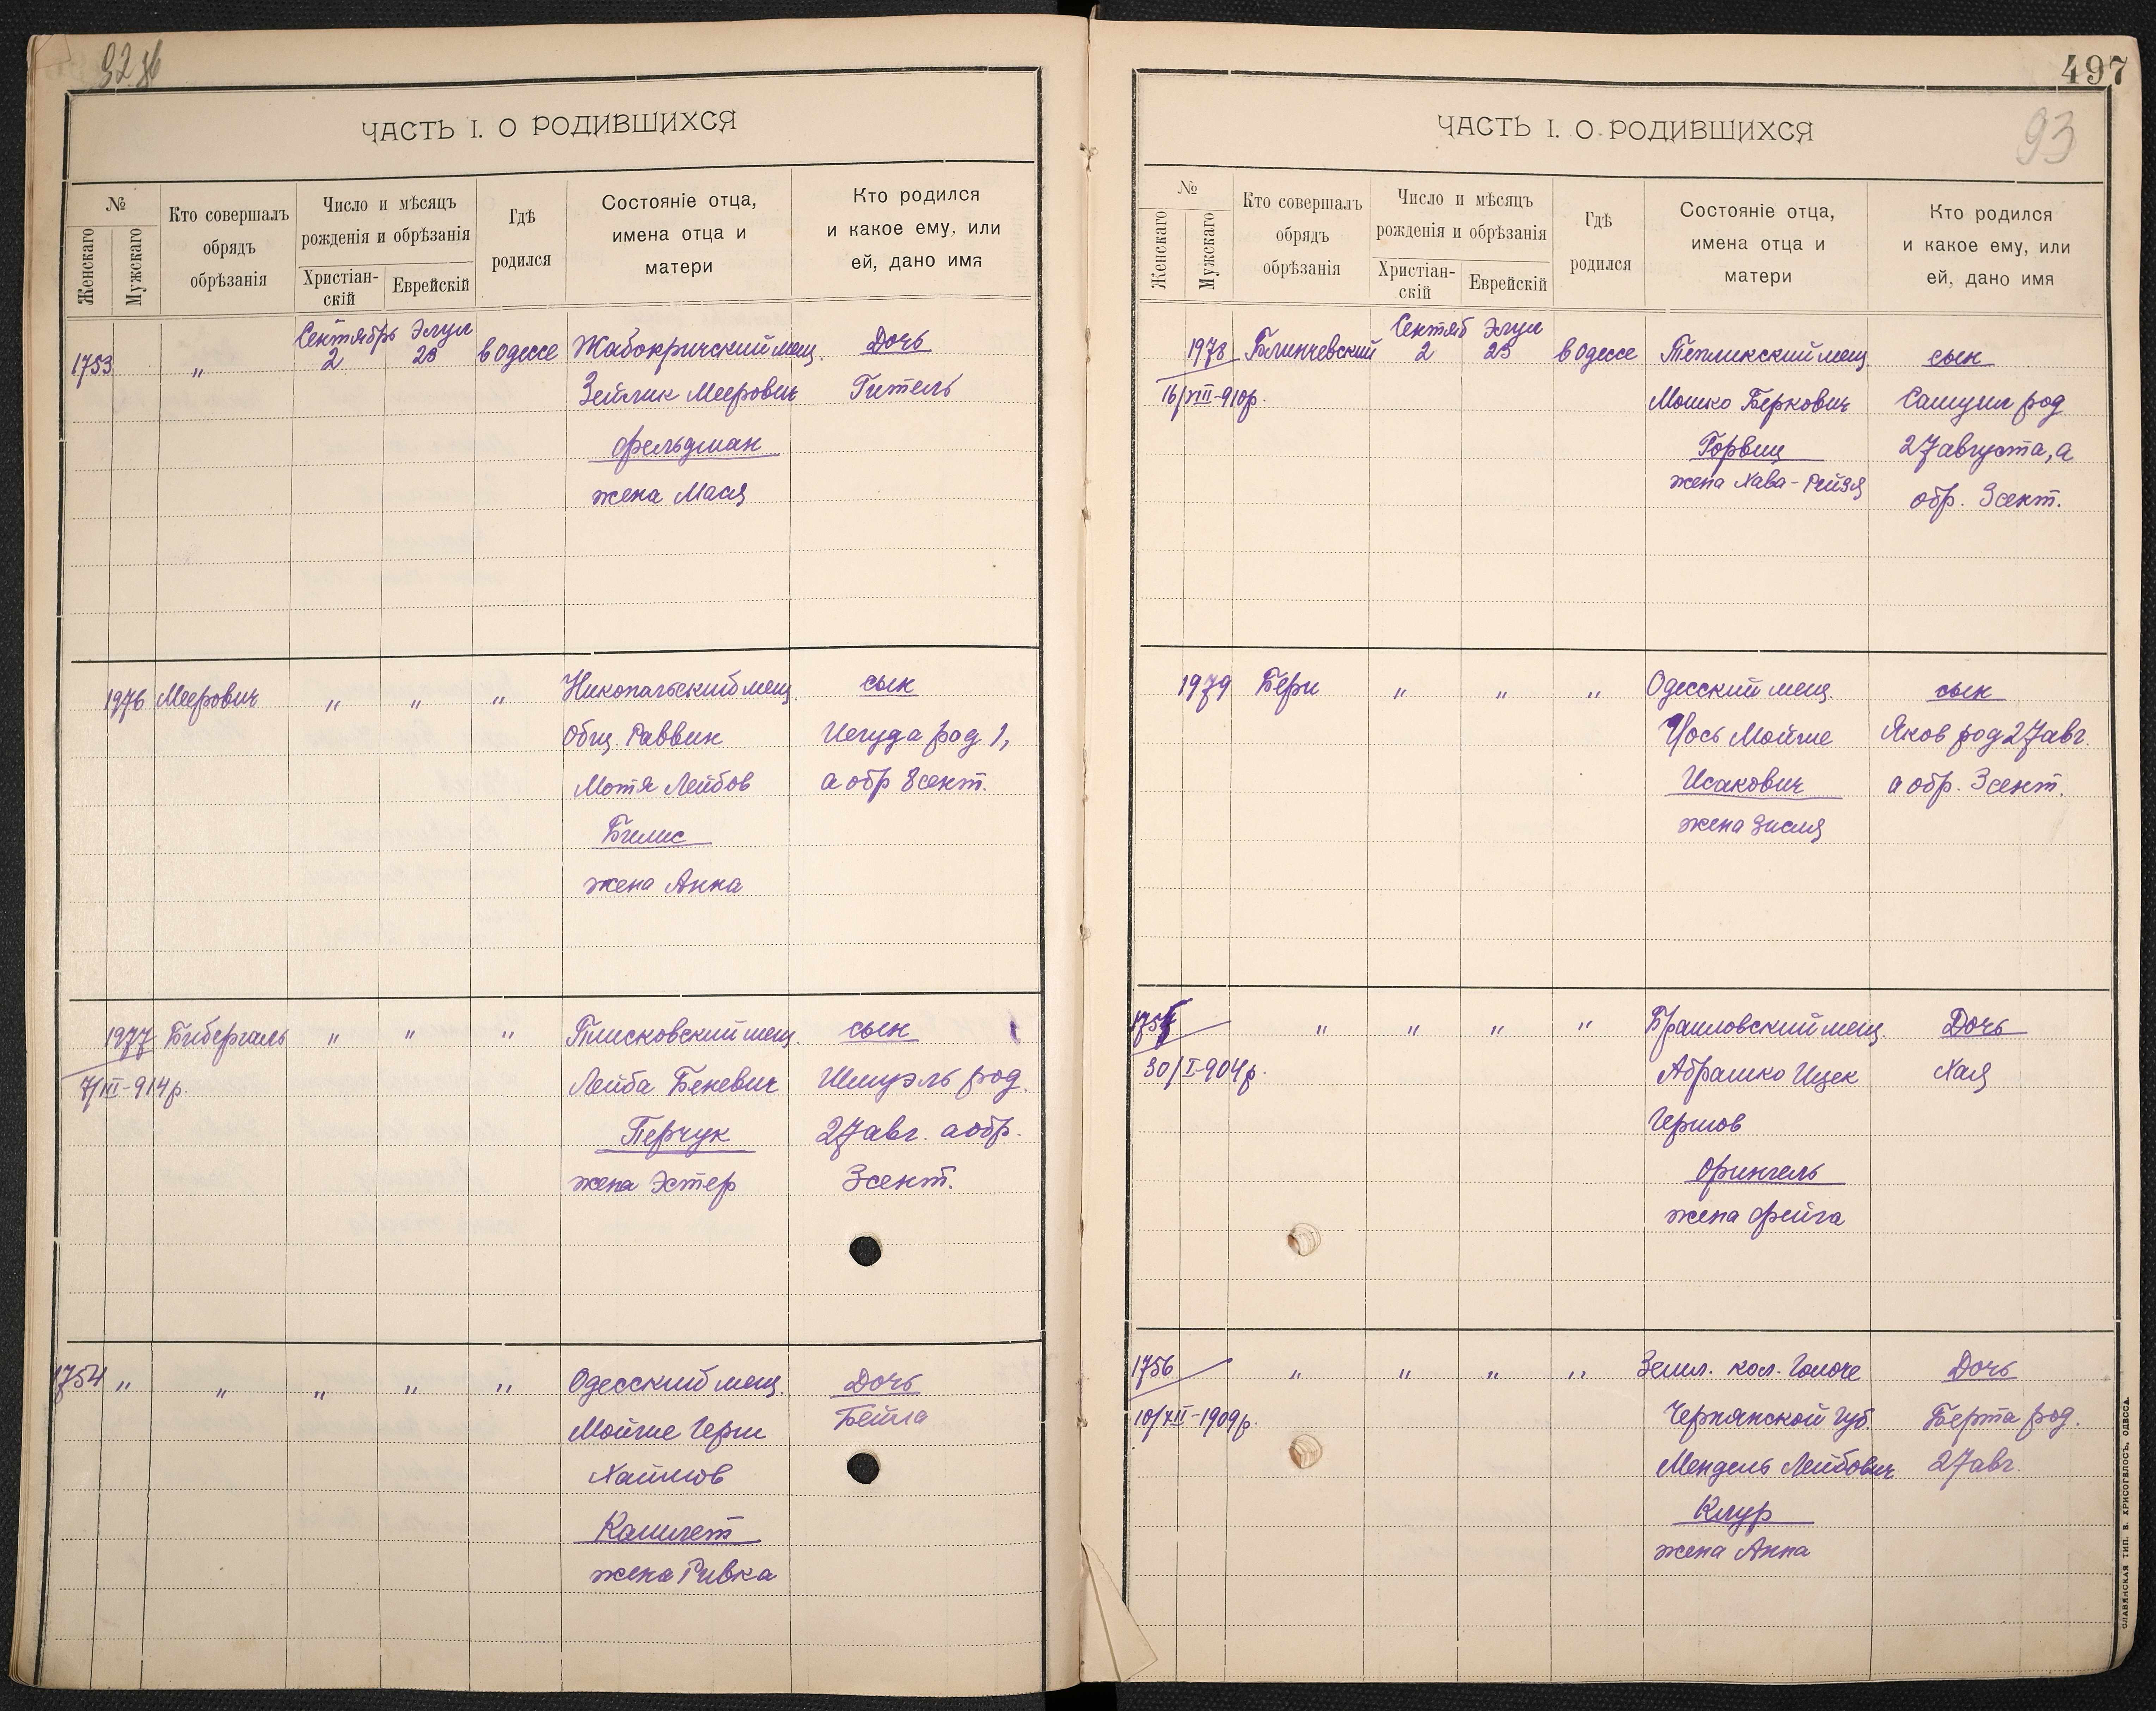 ЧАСТЬ I. О РОДИВШИХСЯ
№
Женскаго
Мужскаго
Кто совершалъ
обрядъ
обрѣзанія
Число и мѣсяцъ
рожденія и обрѣзанія
Христіан-
скій
Еврейскій
Гдѣ
родился
Состояніе отца,
имена отца и
матери
Кто родился
и какое ему, или
ей, дано имя
1753 " Сентябрь 2 Элул 23 в Одессе Жабокричский мещ. Дочь
Зейлик Меерович Гитель
Фельдман
жена Мася
1976 Меерович " " " Никопольский мещ. сын
Общ. Раввин Иегуда род 1,
Мотя Лейбов а обр 8 сент.
Билис
жена Анна
1977 Бибергаль " " " Плисковский мещ. сын
7/III-914р. Лейба Беневич Шмуэль род.
Перчук 27 авг. а обр.
жена Эстер 3 сент.
1754 " " " " " Одесский мещ. Дочь
Мойше Герш Бейла
Хаимов
Камлет
жена Ривка
497
93
ЧАСТЬ I. О РОДИВШИХСЯ
№
Женскаго
Мужскаго
Кто совершалъ
обрядъ
обрѣзанія
Число и мѣсяцъ
рожденія и обрѣзанія
Христіан-
скій
Еврейскій
Гдѣ
родился
Состояніе отца,
имена отца и
матери
Кто родился
и какое ему, или
ей, дано имя
1978 Блинчевский Сентяб 2 Элул 23 в Одессе Тепликский мещ. сын
16/VIII-910р. Мошко Беркович Самуил род
Горвиц 27 августа, а
жена Хава-Рейзя обр. 3 сент.
1979 Бери " " " Одесский мещ. сын
Иось Мойше Яков род 27 авг.
Исакович а обр. 3 сент.
жена Зисля
1755 " " " " Браиловский мещ. Дочь
30/I-904р. Абрашко Ицек Хая
Гершов
Фрингель
жена Фейга
1756 " " " " Земл. кол. Голоче Дочь
10/XII-1909р. Чернянской губ. Берта род.
Мендель Лейбович 27 авг.
Клур
жена Анна
СЛАВЯНСКАЯ ТИП. В. ХРИСОГЕЛОСЪ, ОДЕССА